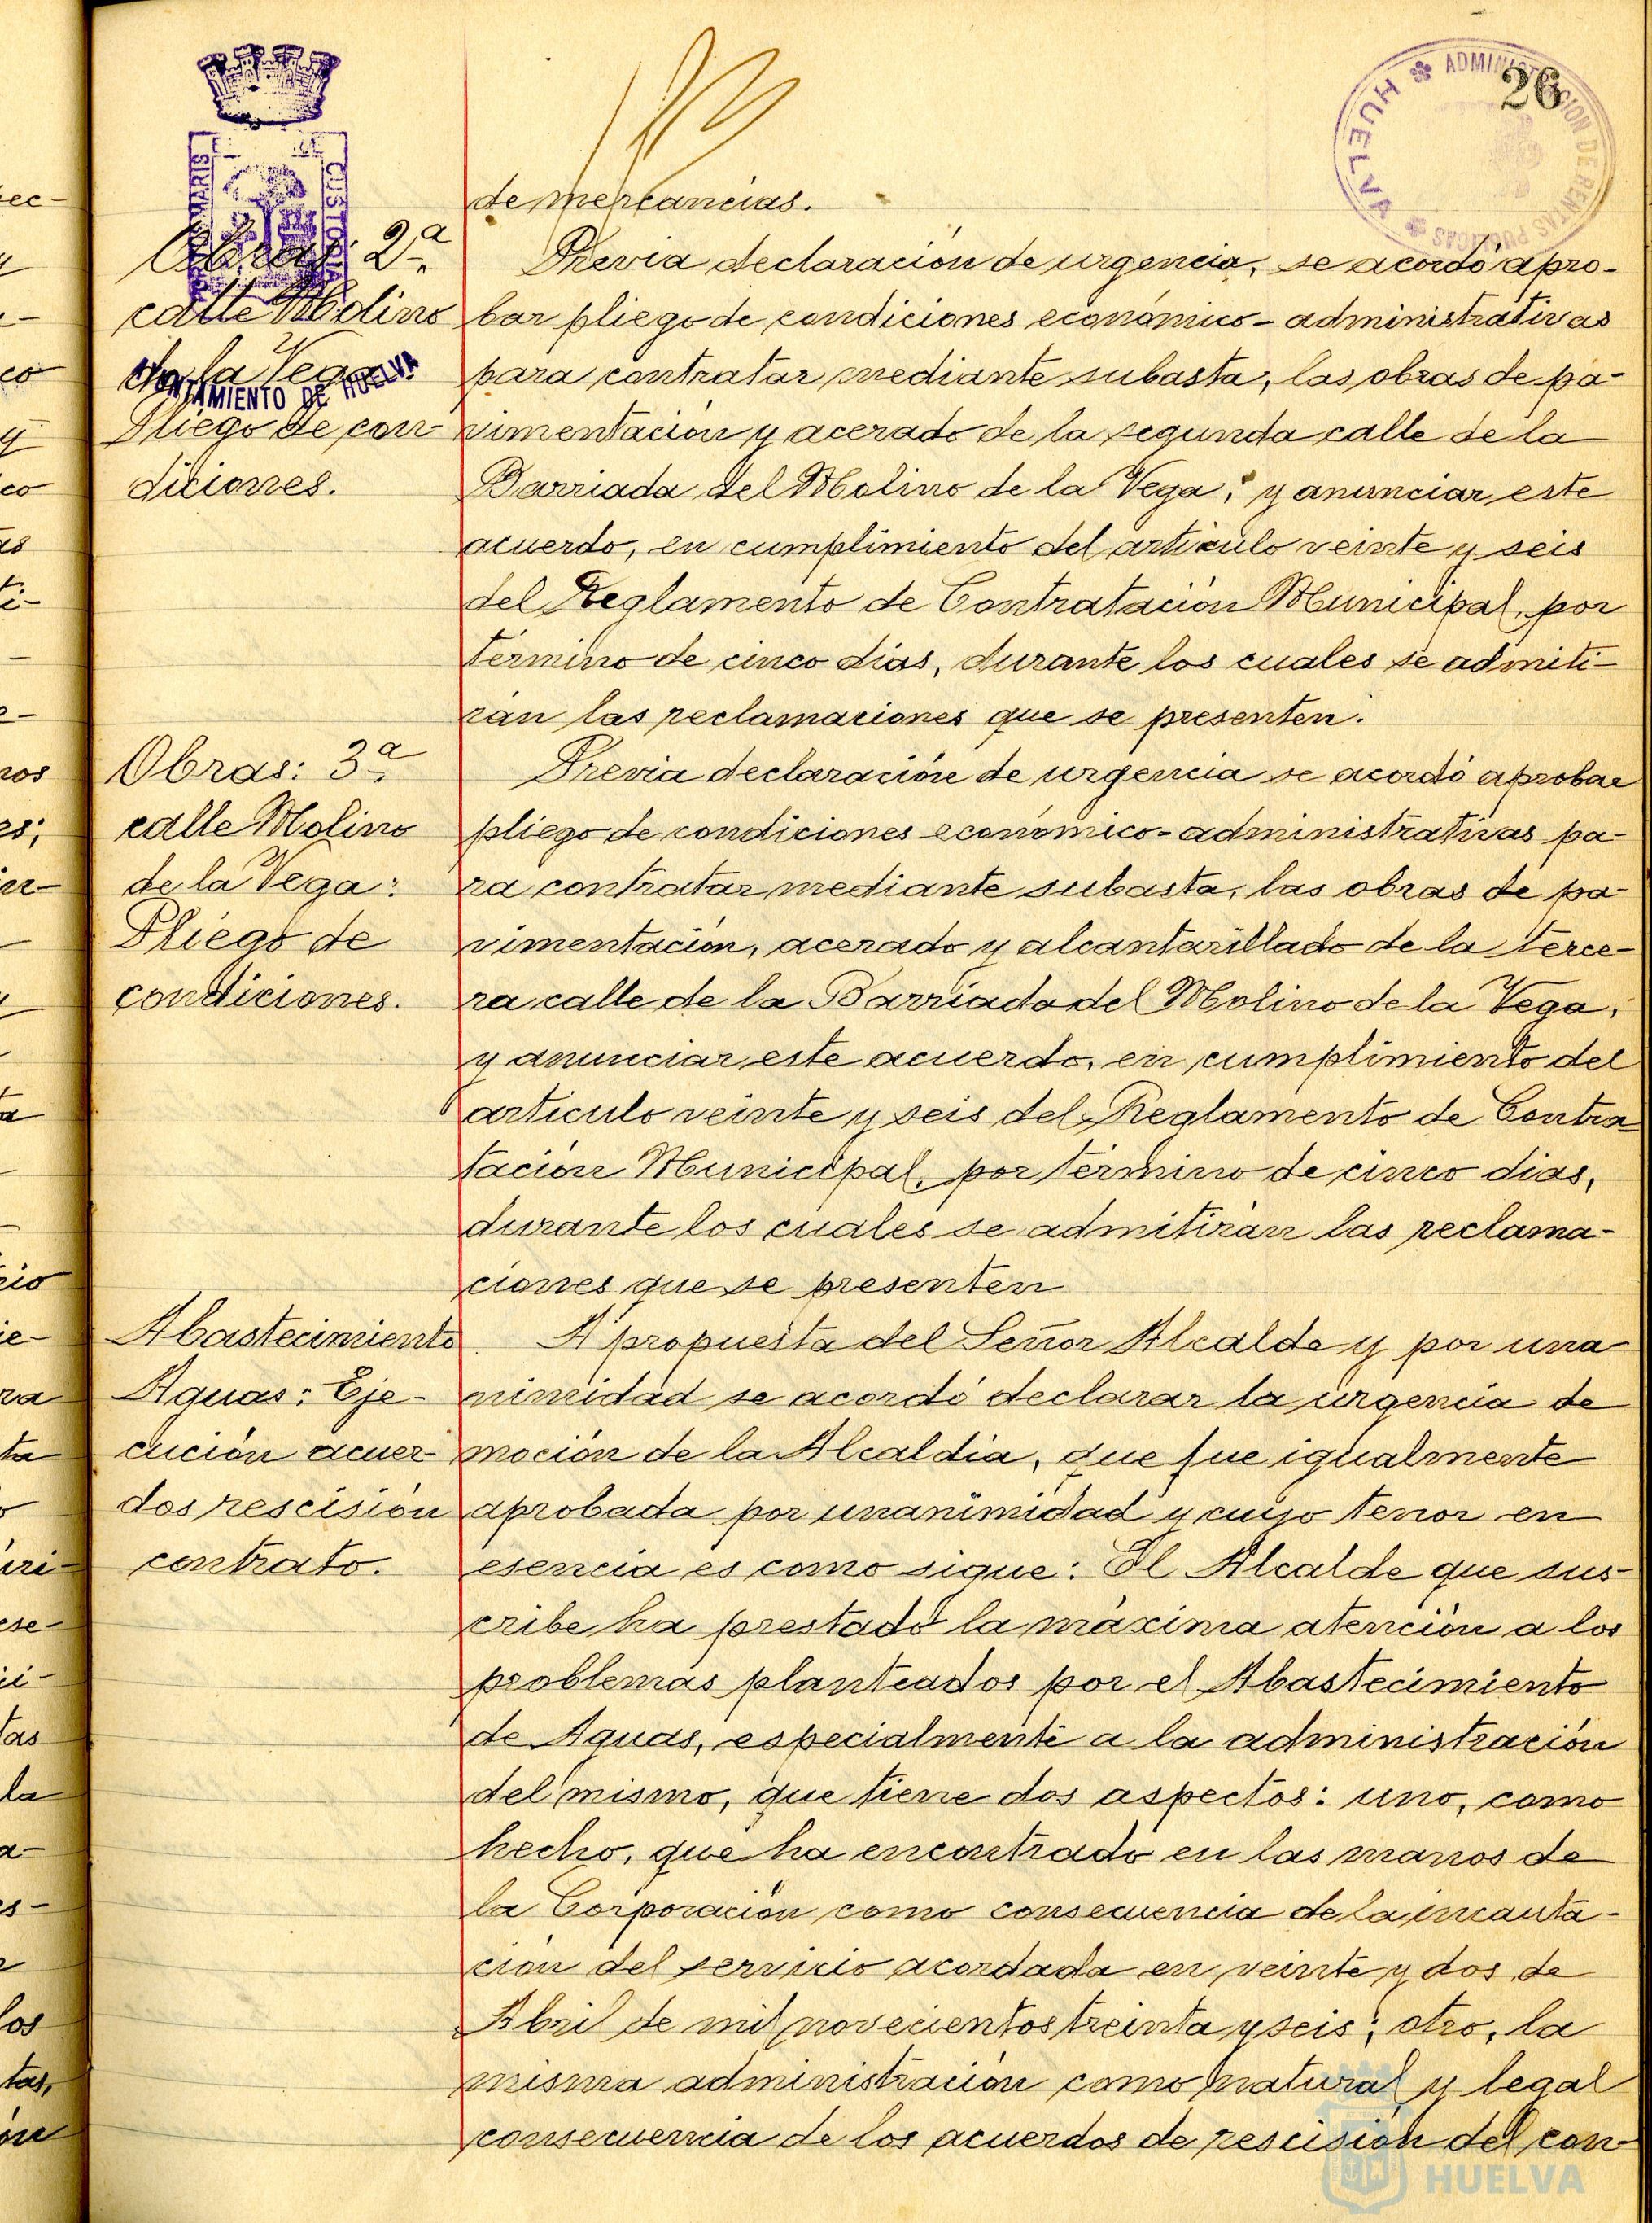 26
ADMINISTRACION DE RENTAS PUBLICAS
HUELVA
MARIS
CUSTODIA
AYUNTAMIENTO DE HUELVA
de mercancias.
Obras: 2ª
calle Molino
de la Vega:
Pliego de con-
diciones.
Previa declaración de urgencia, se acordó apro-
bar pliego de condiciones económico-administrativas
para contratar mediante subasta, las obras de pa-
vimentación y acerado de la segunda calle de la
Barriada del Molino de la Vega; y anunciar este
acuerdo, en cumplimiento del articulo veinte y seis
del Reglamento de Contratación Municipal, por
término de cinco dias, durante los cuales se admiti-
rán las reclamaciones que se presenten.
Obras: 3ª
calle Molino
de la Vega:
Pliego de
condiciones.
Previa declaración de urgencia se acordó aprobar
pliego de condiciones económico-administrativas pa-
ra contratar mediante subasta, las obras de pa-
vimentación, acerado y alcantarillado de la terce-
ra calle de la Barriada del Molino de la Vega,
y anunciar este acuerdo, en cumplimiento del
articulo veinte y seis del Reglamento de Contra
tación Municipal, por término de cinco dias,
durante los cuales se admitirán las reclama-
ciones que se presenten
Abastecimiento
Aguas: Eje-
cución acuer-
dos rescisión
contrato.
A propuesta del Señor Alcalde y por una
nimidad se acordó declarar la urgencia de
moción de la Alcaldia, que fue igualmente
aprobada por unanimidad y cuyo tenor en
esencia es como sigue: El Alcalde que sus-
cribe ha prestado la máxima atención a los
problemas planteados por el Abastecimiento
de Aguas, especialmente a la administración
del mismo, que tiene dos aspectos: uno, como
hecho, que ha encontrado en las manos de
la Corporación como consecuencia de la incauta-
ción del servicio acordada en veinte y dos de
Abril de mil novecientos treinta y seis; otro, la
misma administración como natural y legal
consecuencia de los acuerdos de rescisión del con-
HUELVA